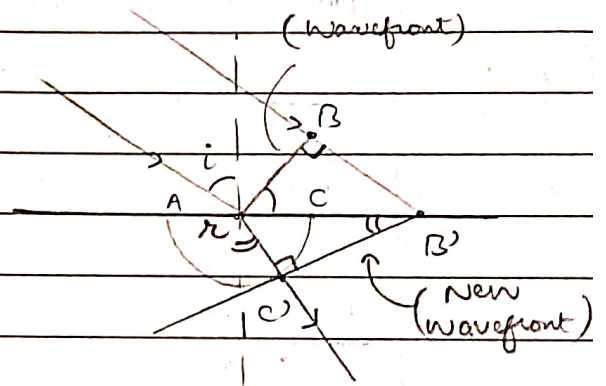 (Wavefront)
B
i
A
C
r
B'
C'
(New
wavefront)